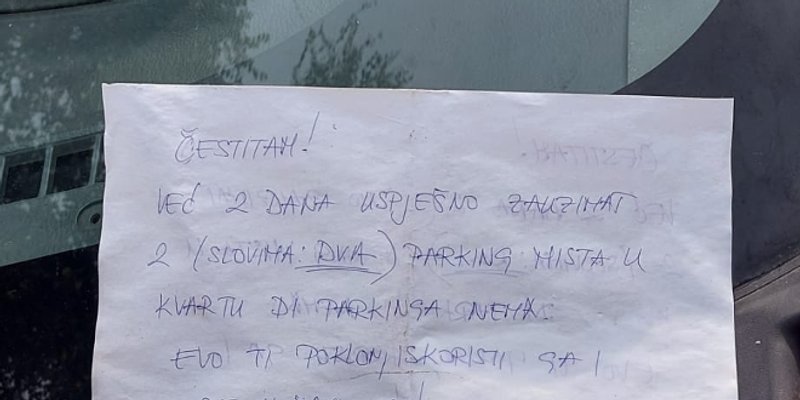 ČESTITAM!
VEĆ 2 DANA USPJEŠNO ZAUZIMAŠ
2 (SLOVIMA: DVA) PARKING MISTA U
KVARTU DI PARKINGA NEMA.
EVO TI POKLON, ISKORISTI GA I